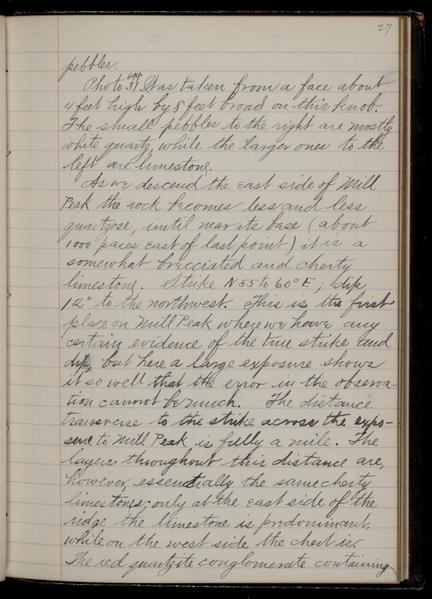 27
pebbles.
Photo was taken from a face about
4 feet high by 8 feet broad on this knob.
The small pebbles to the right are mostly
white quartz, while the larger ones to the
left are limestone.
As we descend the east side of Mill
Peak the rock becomes less and less
quartzose, until near its base (about
1000 paces east of last point) it is a
somewhat brecciated and cherty
limestone. Strike N 55 to 60° E; dip
12° to the northwest. This is the first
place on Mill Peak where we have any
certain evidence of the true strike and
dip, but here a large exposure shows
it so well that the error in the observa-
tion cannot be much. The distance
transverse to the strike across the expo-
sure to Mill Peak is fully a mile. The
layers throughout this distance are,
however, essentially the same cherty
limestones; only at the east side of the
ridge the limestone is predominant,
while on the west side the chert is.
The red quartzite conglomerate containing